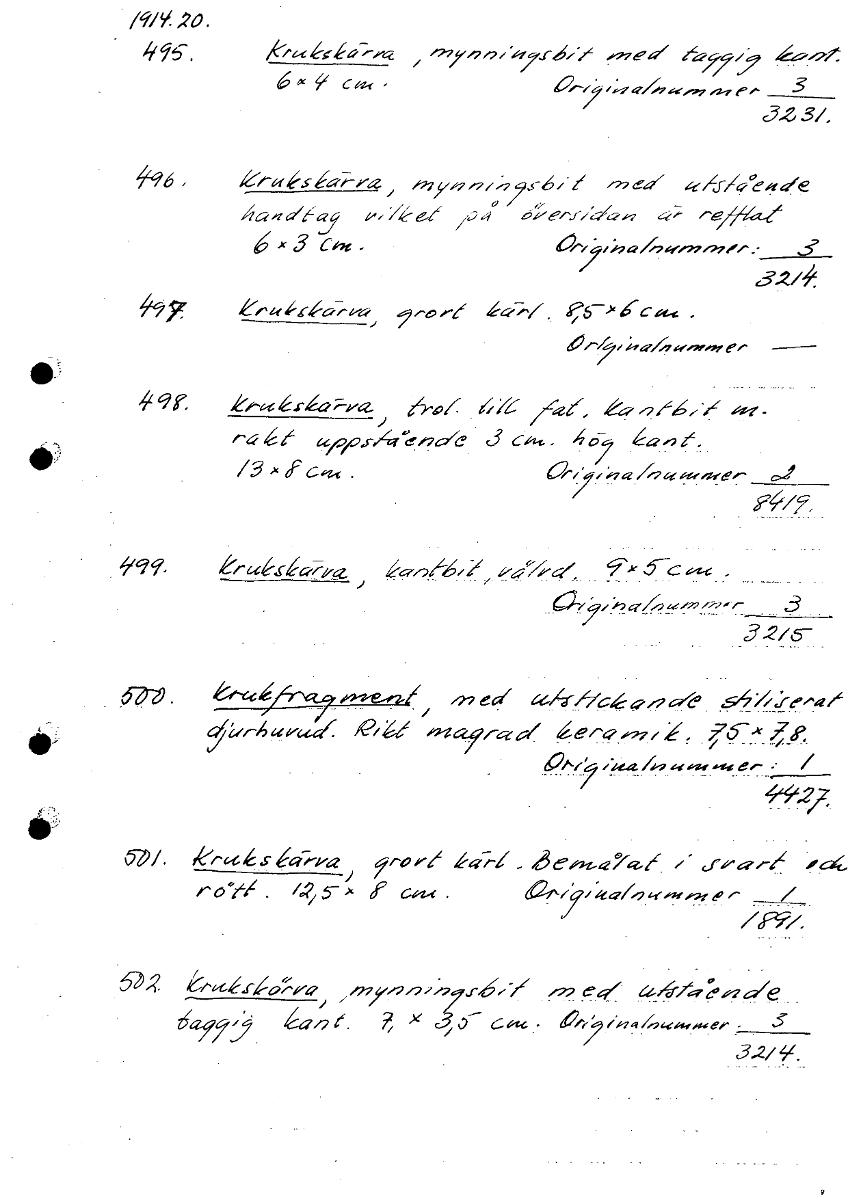 1914.20.
495. Krukskärva, mynningsbit med taggig kant.
6 × 4 cm. Originalnummer 3
3231.
496. Krukskärva, mynningsbit med utstående
handtag vilket på översidan är refflat
6 × 3 cm. Originalnummer: 3
3214.
497. Krukskärva, grovt kärl. 8,5 × 6 cm.
Originalnummer —
498. Krukskärva, trol. till fat. Kantbit m.
rakt uppstående 3 cm. hög kant.
13 × 8 cm. Originalnummer 2
8419.
499. Krukskärva, kantbit, välvd. 9 × 5 cm.
Originalnummer 3
3215
500. Krukfragment, med utstickande stiliserat
djurhuvud. Rikt magrad keramik. 7,5 × 7,8.
Originalnummer: 1
4427.
501. Krukskärva, grovt kärl. Bemålat i svart och
rött. 12,5 × 8 cm. Originalnummer 1
1891.
502. Krukskärva, mynningsbit med utstående
taggig kant. 7, × 3,5 cm. Originalnummer. 3
3214.